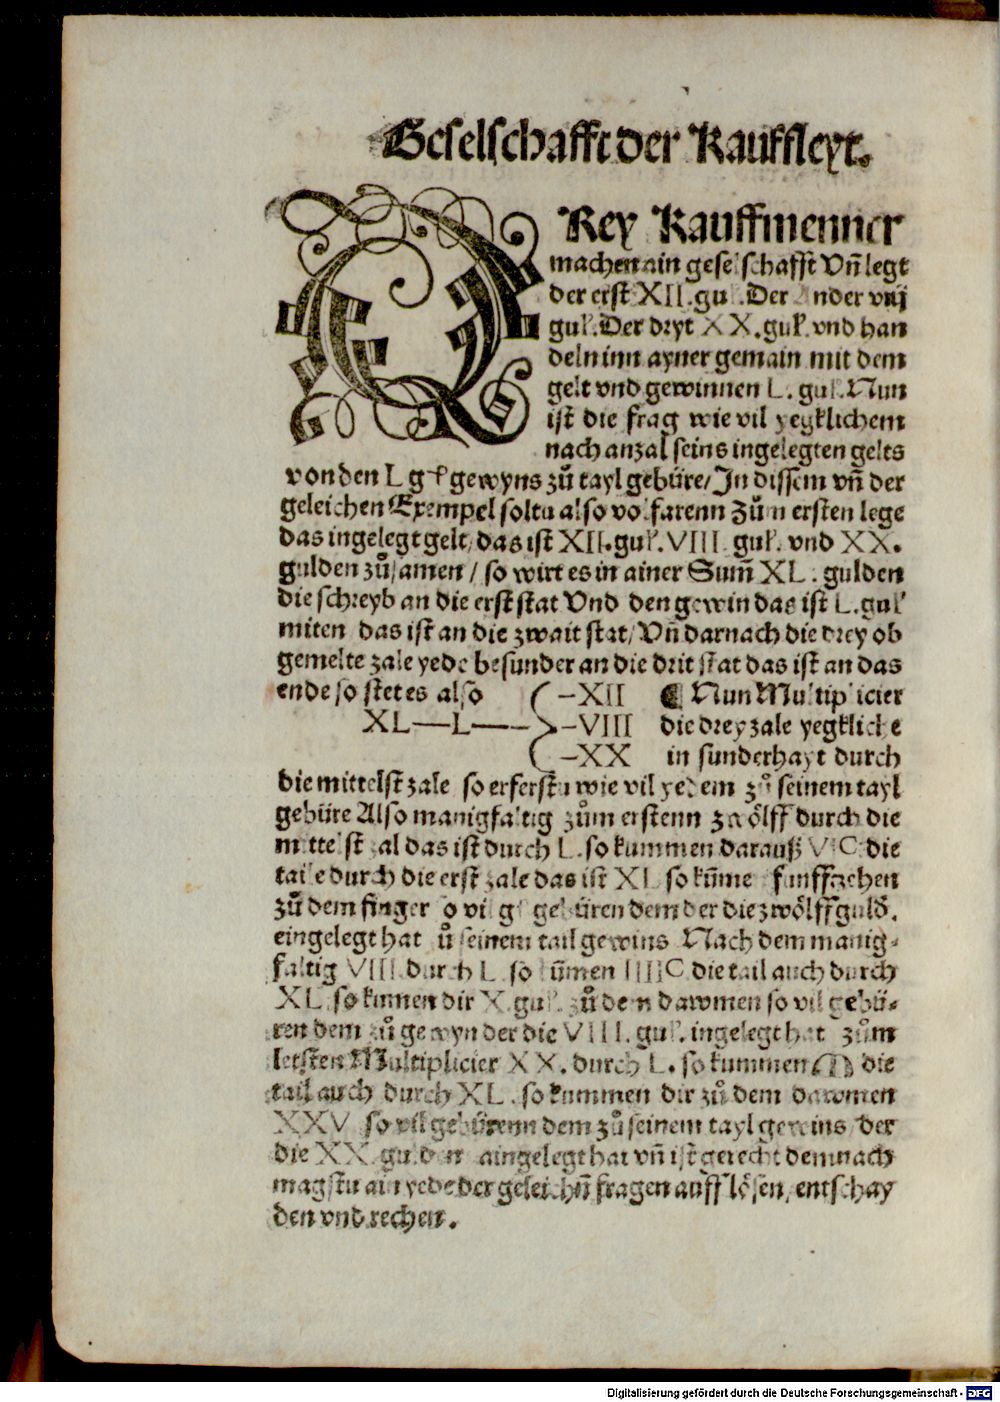 Geselschafft der Kauffleyt.
DRey Kauffmenner
machen ain geselschafft Vn̄ legt
der erst XII.gul.Der Ander viij
gulꝭ.Der dryt XX.gulꝭ.vnd han
deln inn ayner gemain mit dem
gelt vnd gewinnen L.gul.Nun
ist die frag wie vil yegklichem
nach anzal seins ingelegten gelts
von den L gewyns zů tayl gebüre/In dissem vñ der
geleichen Exempel soltu also volfarenn Zům ersten lege
das ingelegt gelt/das ist XII.gulꝭ.VIII gulꝭ.vnd XX.
gulden zůsamen/so wirt es in ainer Sum̄ XL.gulden
die schreyb an die erst stat Vnd den gewin das ist L.gulꝭ
miten das ist an die zwait stat/Vn̄ darnach die drey ob
gemelte zale yede besunder an die drit stat das ist an das
ende so stet es also –XII ¶ Nun Multiplicier
XL—L— –VIII die drey zale yegkliche
–XX in sunderhayt durch
die mittelst zale so erferstu wie vil yedem zů seinem tayl
gebüre Also manigfaltig zům erstenn zwölff durch die
mittelst zal das ist durch L.so kummen darauß VIC die
taile durch die erst zale das ist XL so kūme funffzehen
zů dem finger so vil gebüren dem der die zwölff guld̄.
eingelegt hat zů seinem tail gewins Nach dem manig-
faltig VIII.durch L so kūmen IIIIC die tail auch durch
XL.so kumen dir X.gulꝭ.zů den dawmen so vil gebü-
ren dem zů gewyn der die VIII.gulꝭ.ingelegt hat zům
letsten Multiplicier XX.durch L.so kummen M die
tail auch durch XL.so kummen dir zů dem dawmen
XXV so vil gebürenn dem zů seinem tayl gewins/der
die XX gulden aingelegt hat vn̄ ist gerecht demnach
magstu ain yede der geleichn̄ fragen auff lösen/entschay
den vnd rechen.
Digitalisierung gefördert durch die Deutsche Forschungsgemeinschaft - DFG